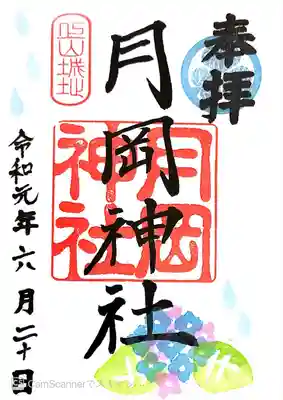 奉拝
月岡神社
月岡神社
令和元年六月二十日
CamScannerでスキャン